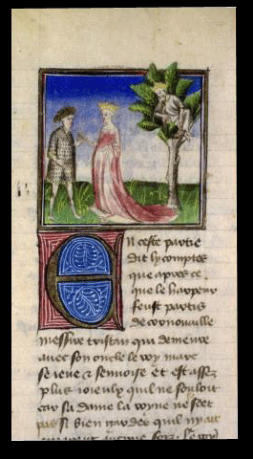 En ceste partie
dit ly comptes
que apres ce
que le harpeur
feust partis
de cornouaille
messire tristan qui demeure
avec son oncle le roy marc
se jeue & envoise et est assez
plus joieulx quil ne souloit
car sa dame la royne ne scet
pas si bien garder quil ny ait